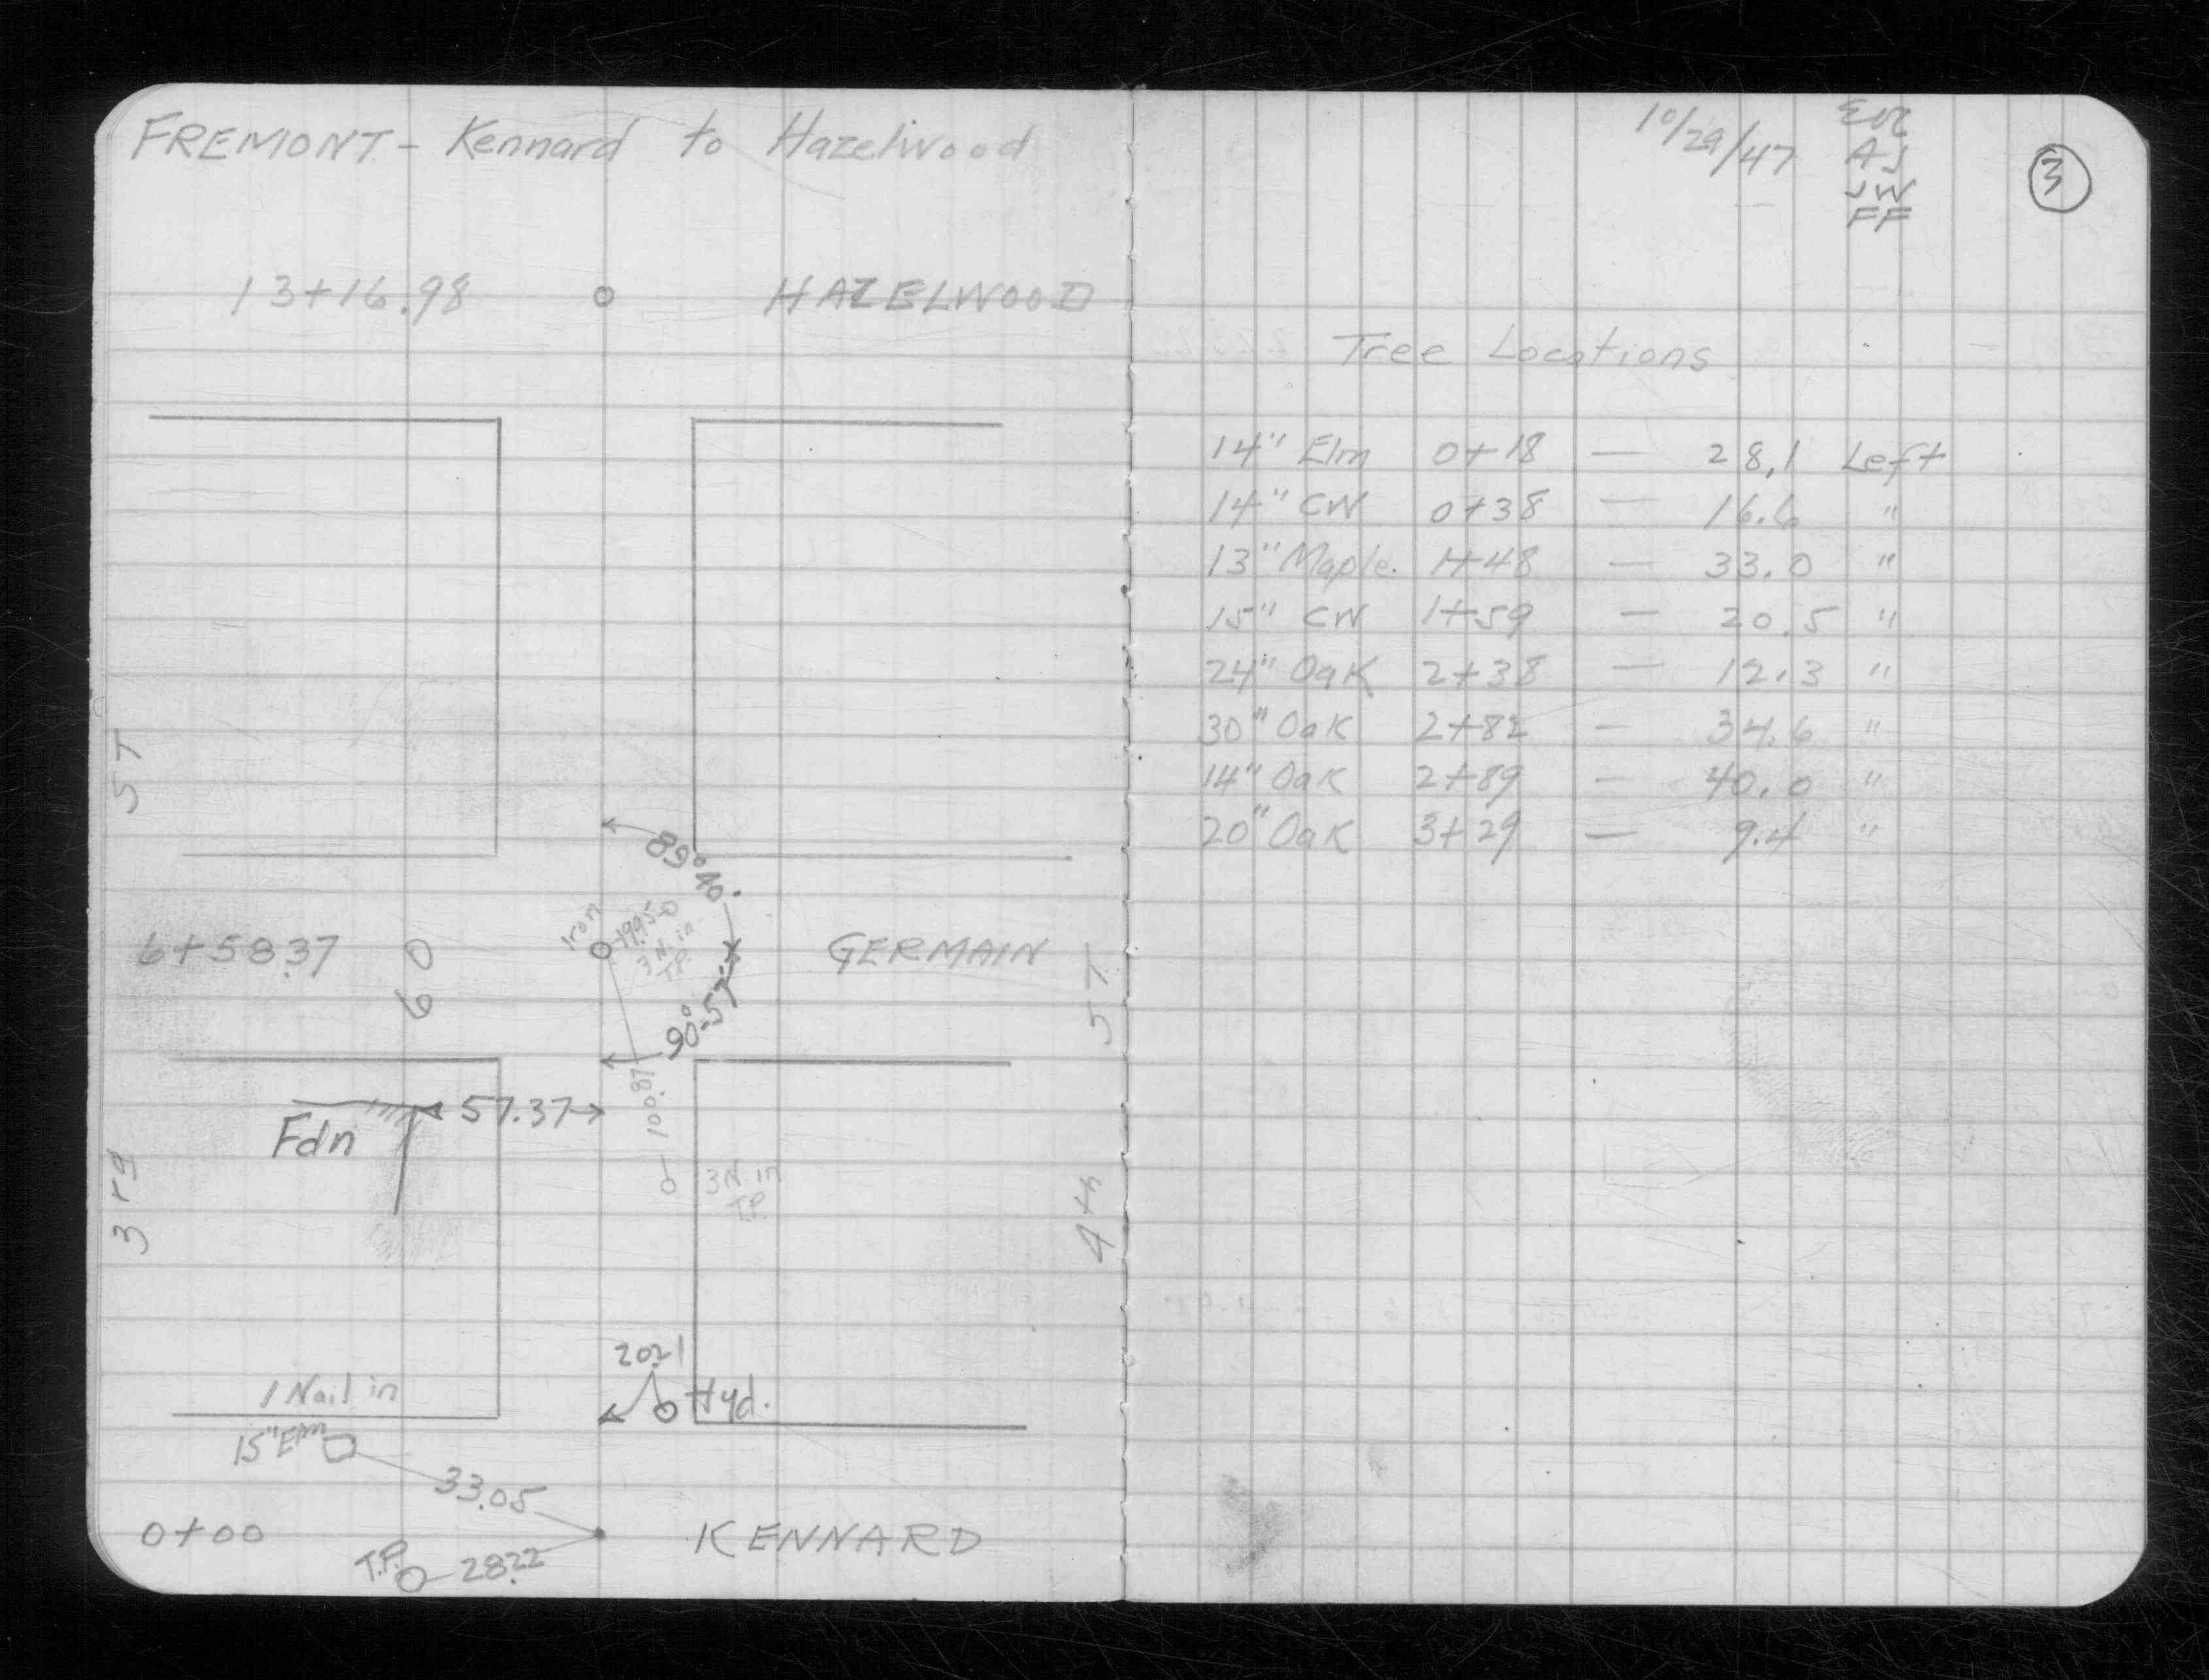 FREMONT - Kennard to Hazelwood
13+16.98 HAZELWOOD
ST
89° 40'
Iron
3 N. in
T.P.
6+58.37 60 GERMAIN
ST
90°-57'
57.37
Fdn
100.87
3 N. in
T.P.
3rd
4th
20.21
Hyd.
1 Nail in
15" Elm
33.05
0+00 KENNARD
T.P. 28.22
10/29/47
AJ
JW
FF
3
Tree Locations
14" Elm 0+18 — 28.1 Left
14" CW 0+38 — 16.6 "
13" Maple. 1+48 — 33.0 "
15" CW 1+59 — 20.5 "
24" Oak 2+38 — 12.3 "
30" Oak 2+82 — 34.6 "
14" Oak 2+89 — 40.0 "
20" Oak 3+29 — 9.4 "